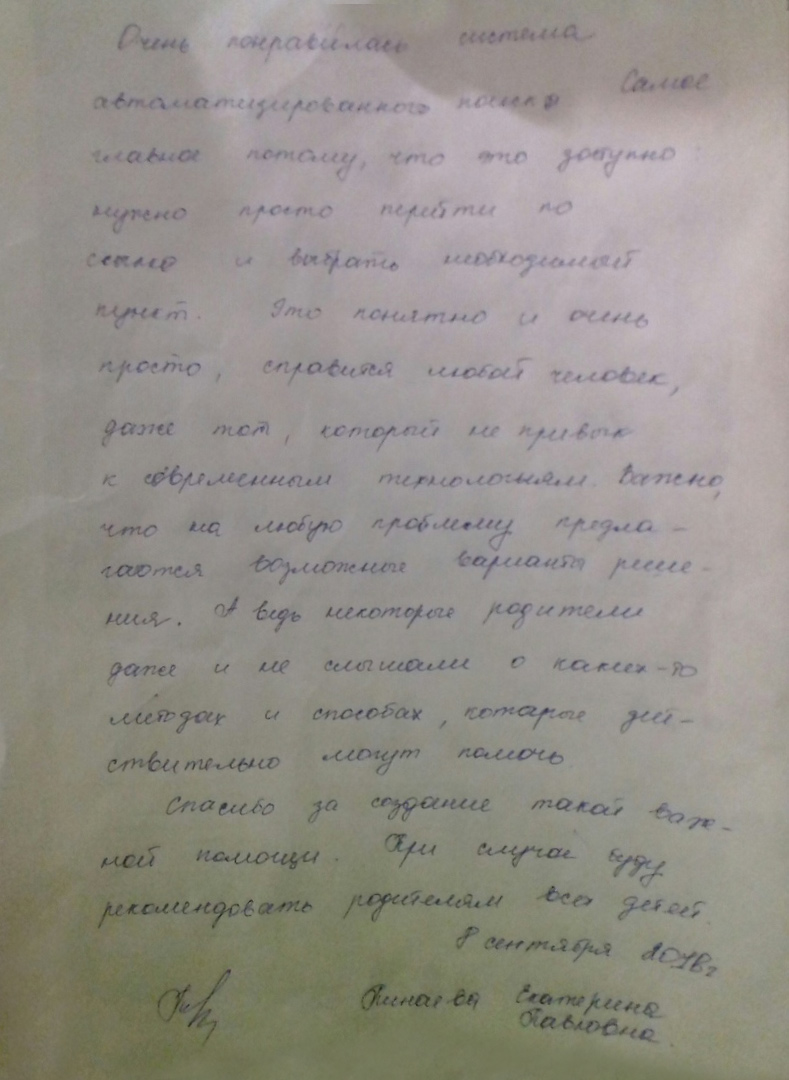 Очень понравилась система
автоматизированного поиска Самое
главное потому, что это доступно
нужно просто перейти по
ссылке и выбрать необходимый
пункт. Это понятно и очень
просто, справится любой человек,
даже тот, который не привык
к современным технологиям. Важно,
что на любую проблему предла-
гаются возможные варианты реше-
ния. А ведь некоторые родители
даже и не слышали о каких-то
методах и способах, которые дей-
ствительно могут помочь
Спасибо за создание такой важ-
ной помощи. При случае буду
рекомендовать родителям всех детей.
8 сентября 2018г
Екатерина
Павловна.